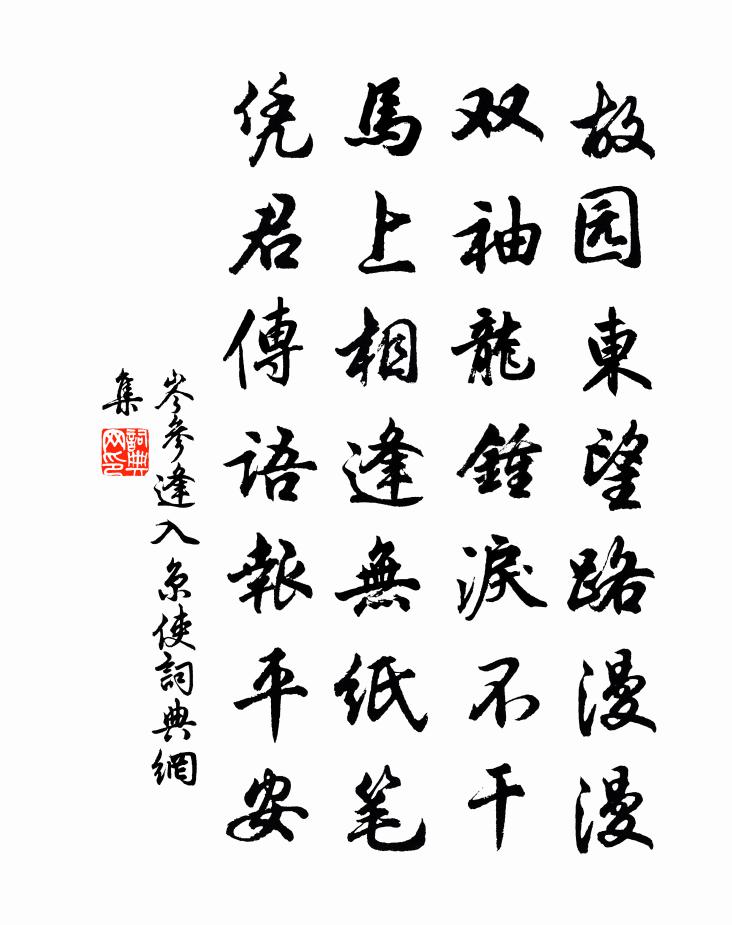 故园東望路漫漫
双袖龍鍾淚不干
馬上相逢無紙笔
凭君傳語報平安
岑參逢入京使詞典網
集
詞典
网印